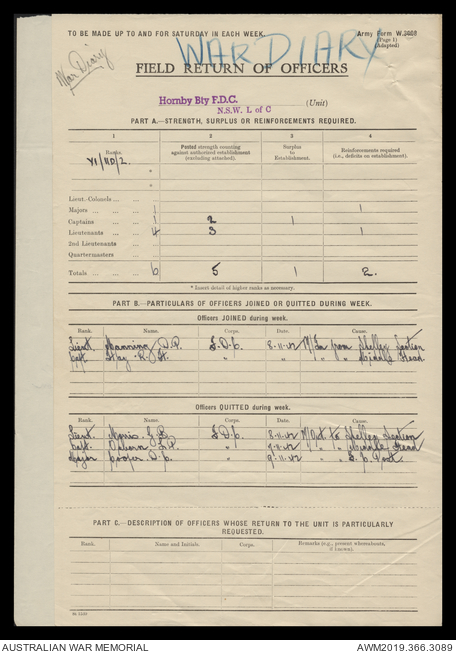 TO BE MADE UP TO AND FOR SATURDAY IN EACH WEEK.
Army Form W.3008
(Page 1)
(Adapted)
WAR DIARY
War Diary
FIELD RETURN OF OFFICERS
Hornby Bty F.D.C. (Unit)
N.S.W. L of C
PART A.—STRENGTH, SURPLUS OR REINFORCEMENTS REQUIRED.
1 2 3 4
Ranks. Posted strength counting against authorized establishment (excluding attached). Surplus to Establishment. Reinforcements required (i.e., deficits on establishment).
VI/110/2.
*
*
Lieut.-Colonels
Majors 1 1
Captains 1 2 1
Lieutenants 4 3 1
2nd Lieutenants
Quartermasters
Totals 6 5 1 2.
* Insert detail of higher ranks as necessary.
PART B.—PARTICULARS OF OFFICERS JOINED OR QUITTED DURING WEEK.
Officers JOINED during week.
Rank. Name. Corps. Date. Cause.
Lieut. Manning D.P. F.D.C. 8.11.42 M/In from Shelley Section
Capt. Hay R. " " " " " Middle Head
Officers QUITTED during week.
Rank. Name. Corps. Date. Cause.
Lieut. F.D.C. 8.11.42 M/Out to Shelley Section
Capt. " " " Middle Head
Major Cooper D.C. " 9.11.42
PART C.—DESCRIPTION OF OFFICERS WHOSE RETURN TO THE UNIT IS PARTICULARLY
REQUESTED.
Rank. Name and Initials. Corps. Remarks (e.g., present whereabouts, if known).
AUSTRALIAN WAR MEMORIAL
AWM2019.366.3089